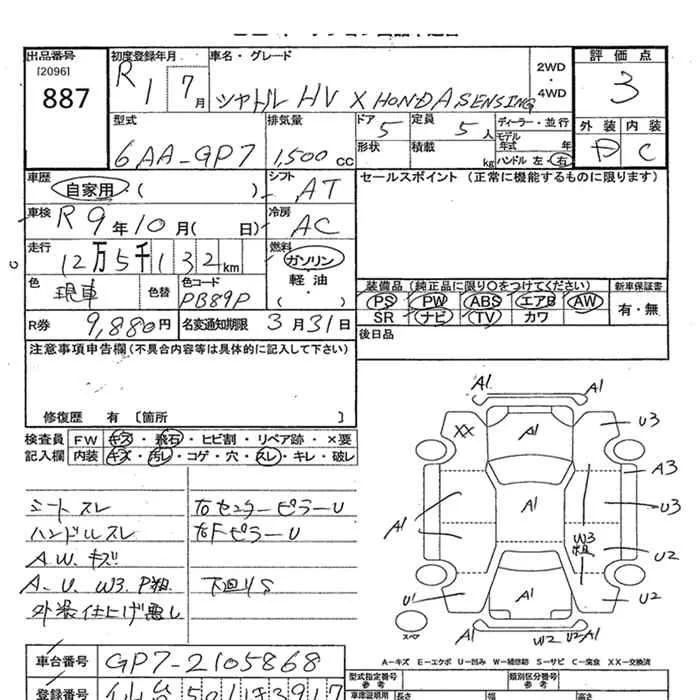 出品番号
[2096]
887
初度登録年月
R1 7月
車名・グレード
シャトル HV X HONDA SENSING
2WD
・
4WD
評価点
3
外装 内装
D C
型式
6AA-GP7
排気量
1,500 cc
ドア 5
形状
定員 5 人
積載 kg
ディーラー・並行
モデル年式 年
ハンドル 左・右
車歴
自家用・( )
シフト
AT
セールスポイント (正常に機能するものに限ります)
車検
R 9年10月( 日)
冷房
AC
走行
12万5千132km
燃料
ガソリン
・
軽油
・
( )
色
銀車
色替
色コード
PB89P
装備品 (純正品に限り○をつけてください)
PS PW ABS エアB AW
SR ナビ TV カワ
新車保証書
有・無
R券
9,880円
名変通知期限 3月31日
後日品
注意事項申告欄(不具合内容等は具体的に記入して下さい)
修復歴 有 [箇所 ]
検査員
記入欄
FW キズ・飛石・ヒビ割・リペア跡・×要
内装 キズ・汚レ・コゲ・穴・スレ・キレ・破レ
シートスレ
ハンドルスレ
AW.キズ
A-U.W3.P粗
外装仕上げ悪し
右センターピラーU
右FピラーU
下回りS
A1
A1
XX
A1
U3
A3
A1
A1
U3
W3
粗
U2
U1
A1
U2
スペア
A1
W2
U2-A1
A1
A-キズ E-エクボ U-凹み W-補修跡 S-サビ C-腐食 XX-交換済
車台番号
GP7-2105868
型式指定番号
参考
類別区分番号
参考
登録番号
車庫証明用
長さ
幅
高さ